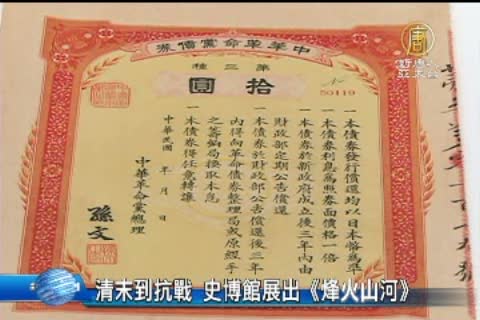 中華革命黨債券
第三種
拾圓
No 50119
一本債券發行償還均以日本幣為準
一本債券利息為照券面價格一倍
一本債券於新政府成立後三年內由
財政部定期公告償還
一本債券於財政部公告償還後三年
內得向革命債券整理局或原經手
之籌餉局換取本息
一本債券得任意轉讓
中華民國 年 月 日
中華革命黨總理
孫文
新唐人
亞太台
清末到抗戰 史博館展出《烽火山河》